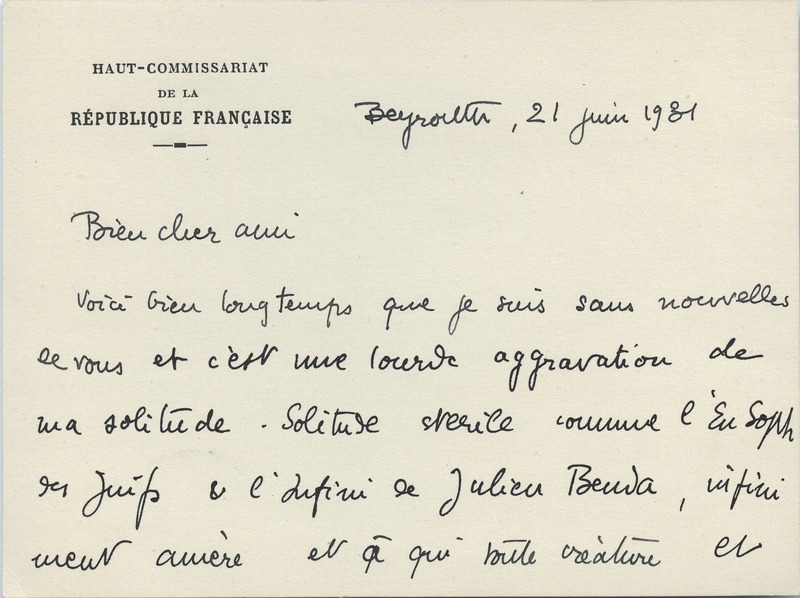 HAUT-COMMISSARIAT
DE LA
RÉPUBLIQUE FRANÇAISE
Beyrouth, 21 juin 1931
Bien cher ami
Voici bien longtemps que je suis sans nouvelles
de vous et c'est une lourde aggravation de
ma solitude. Solitude stérile comme l'En Soph
des Juifs & l'Infini de Julien Benda, infini
ment amère et à qui toute créature et